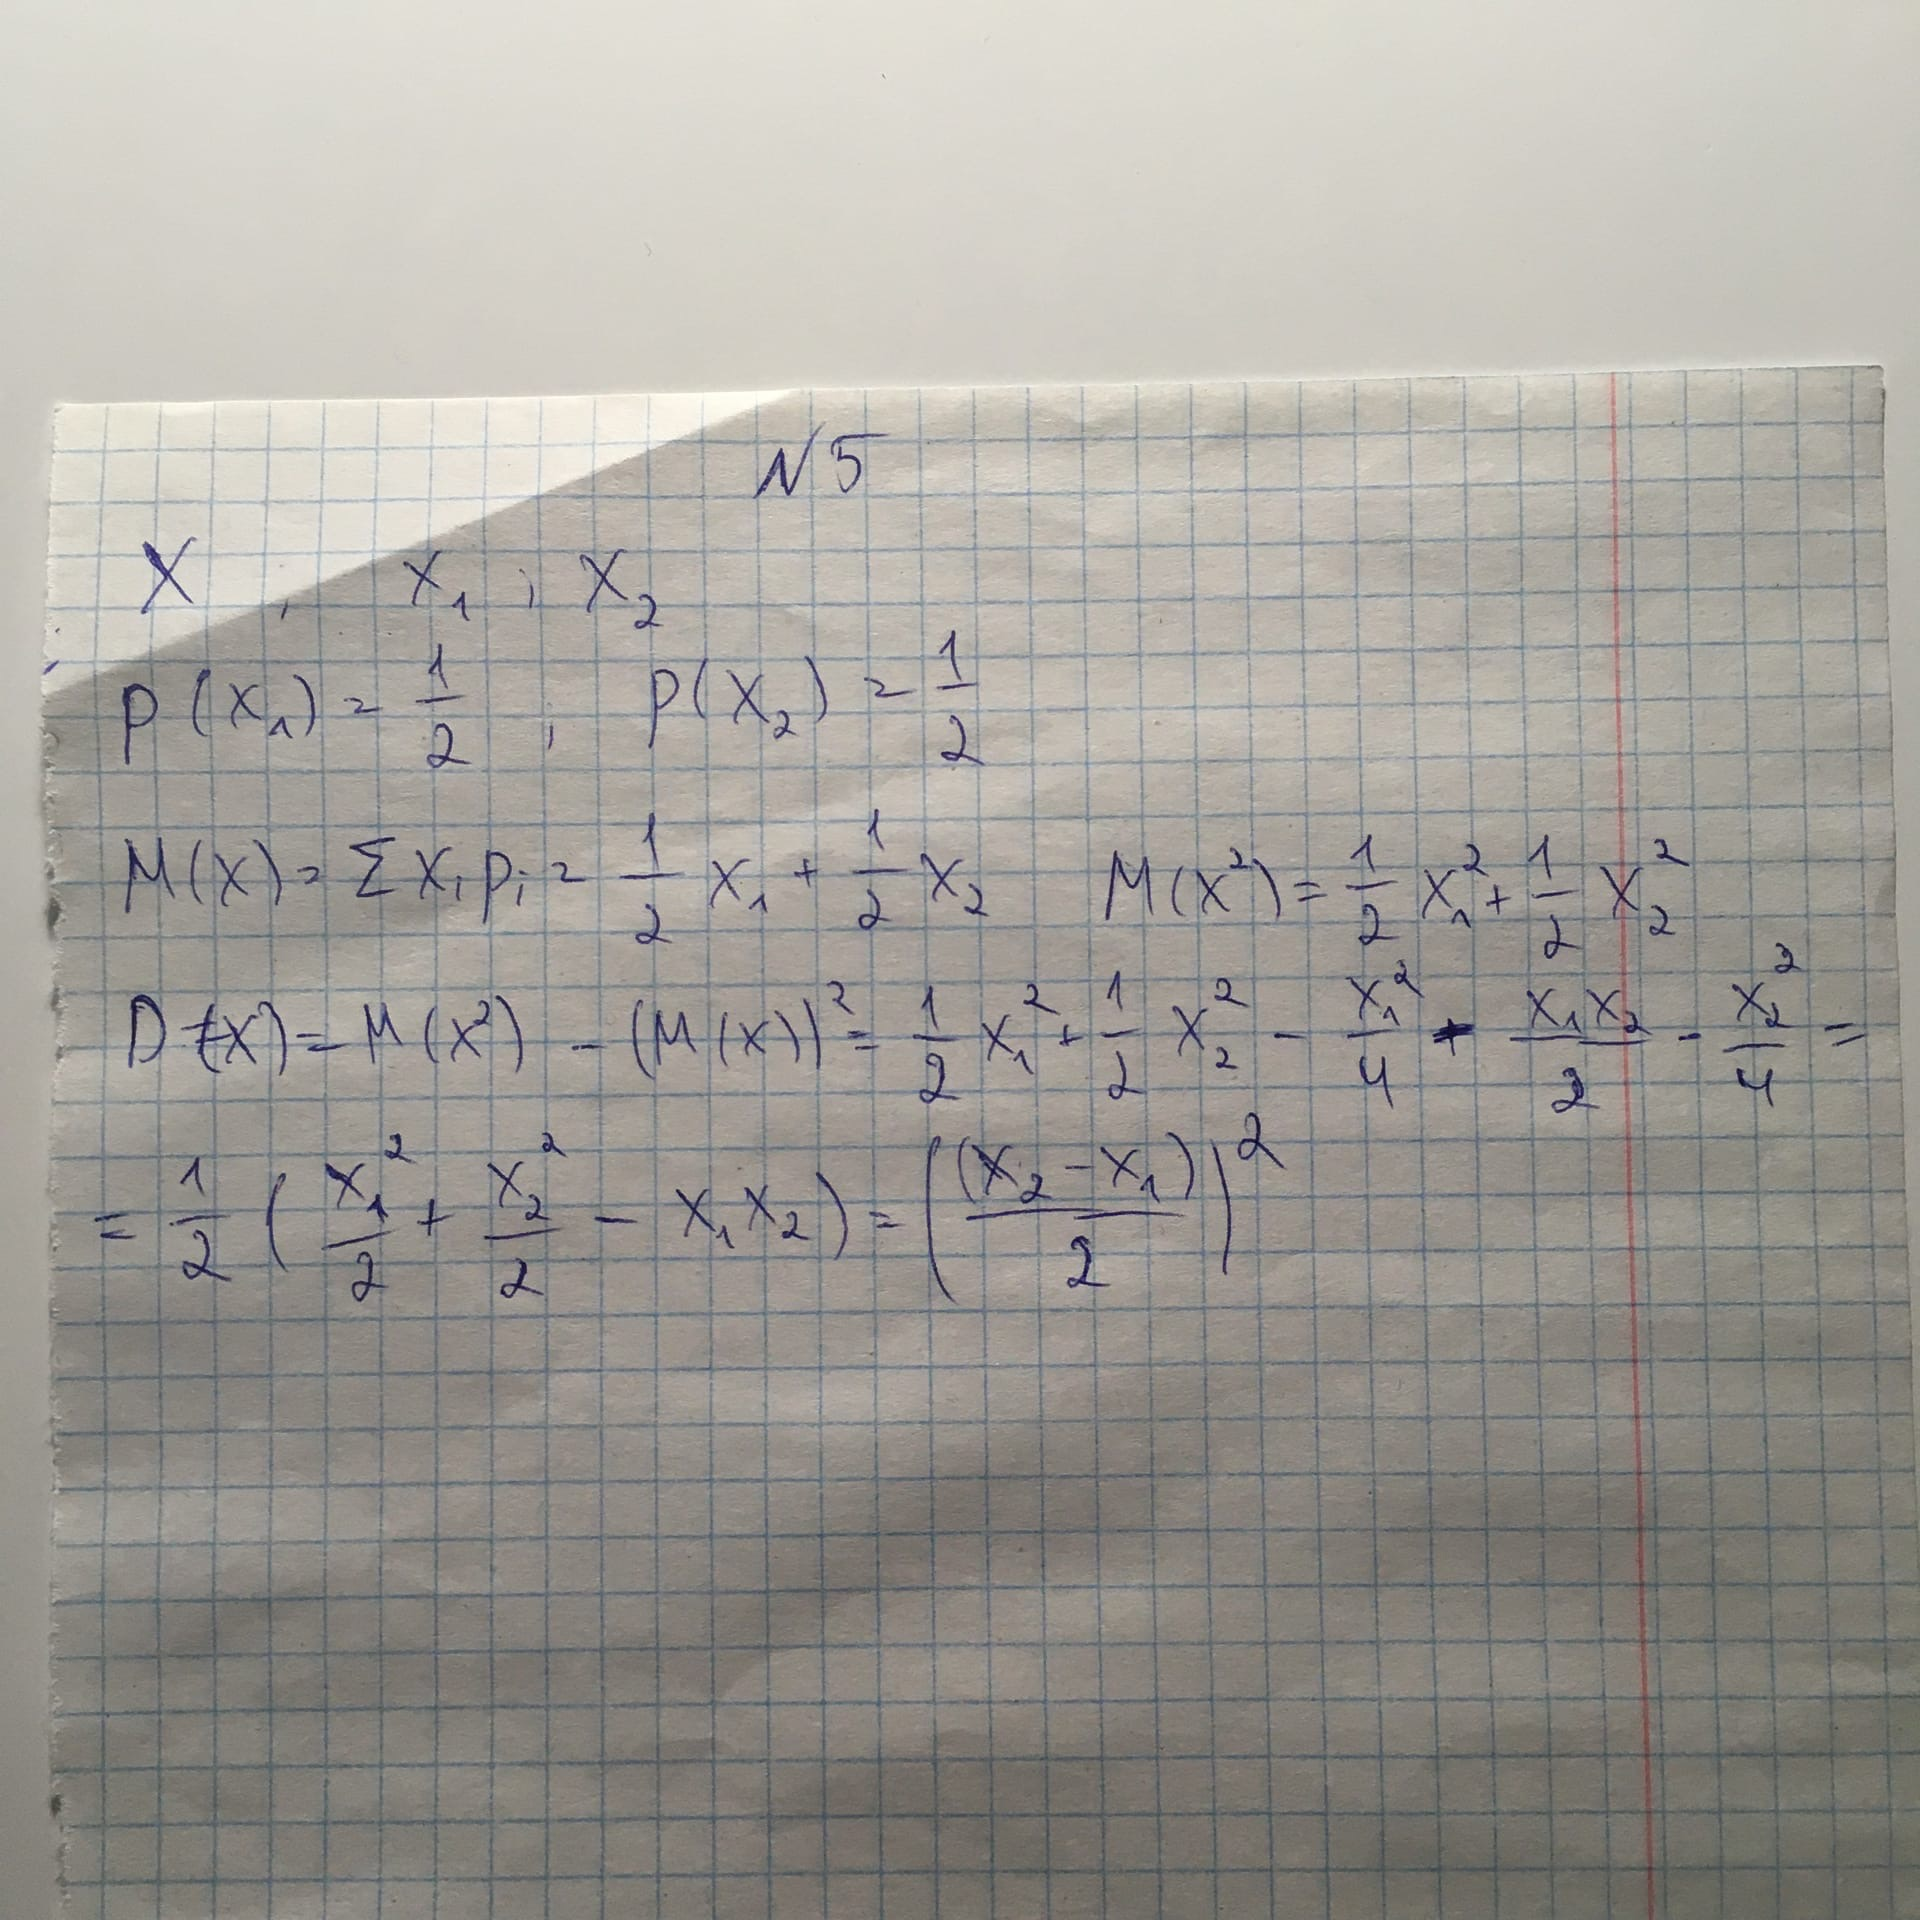 N5
X , x₁ ; x₂
p(x₁) = 1/2 ; p(x₂) = 1/2
M(x) = Σ xᵢ pᵢ = 1/2 x₁ + 1/2 x₂ M(x²) = 1/2 x₁² + 1/2 x₂²
D(x) = M(x²) - (M(x))² = 1/2 x₁² + 1/2 x₂² - x₁²/4 - x₁x₂/2 - x₂²/4 =
= 1/2 ( x₁²/2 + x₂²/2 - x₁x₂ ) = ( (x₂ - x₁)/2 )²